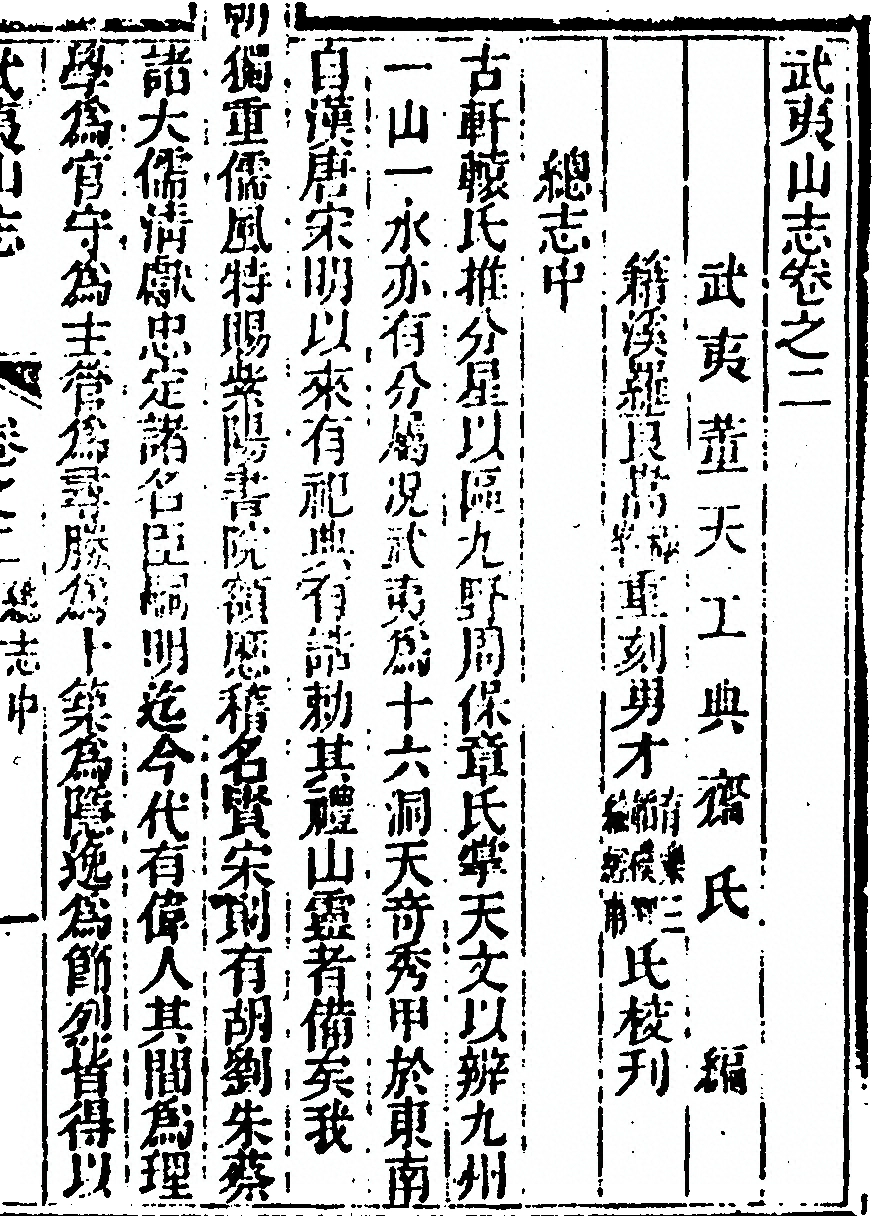 武夷山志卷之二
武夷董天工典齋氏編
籍溪羅良嵩重刻男才氏校刊
總志中
古軒轅氏推分星以區九野周保章氏掌天文以辨九州
一山一水亦有分屬况武夷爲十六洞天奇秀甲於東南
自漢唐宋明以來有祀典有誥勅其禮山靈者備矣我
朝獨重儒風特賜紫陽書院額歷稽名賢宋則有胡劉朱蔡
諸大儒清獻忠定諸名臣嗣明迄今代有偉人其間爲理
學爲官守爲主管爲尋勝爲卜築爲隱逸爲節烈皆得以
武夷山志 卷之二 總志中 一